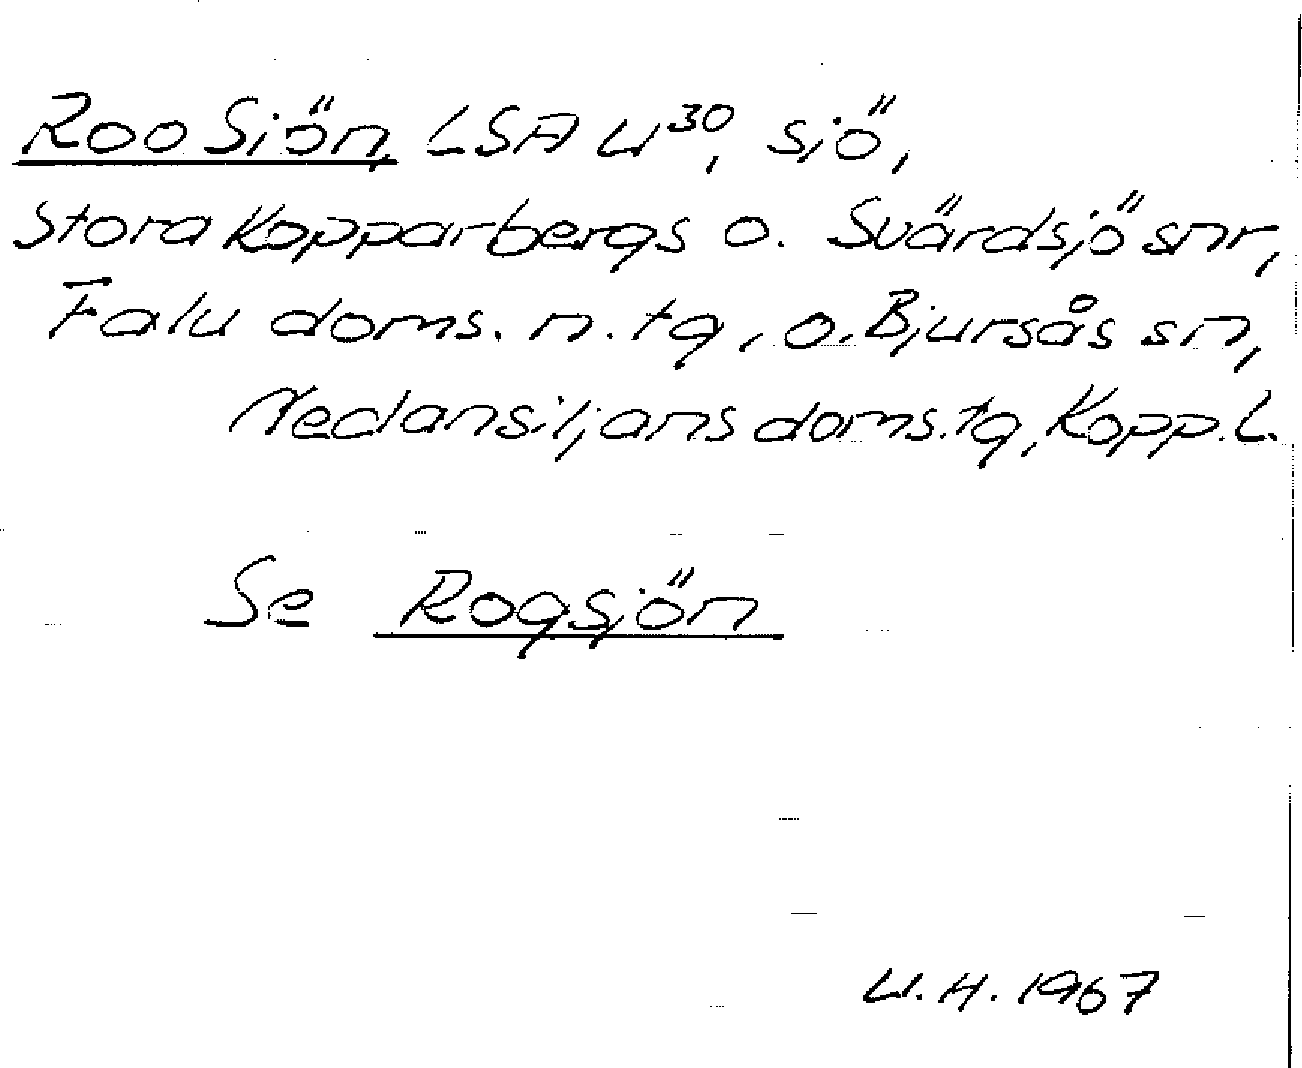 Roo Siön, LSA U³⁰, sjö,
Stora Kopparbergs o. Svärdsjö snr,
Falu doms. n. tg, o. Bjursås sn,
Nedansiljans doms.tg, Kopp.l.
Se Rogsjön
U.H. 1967